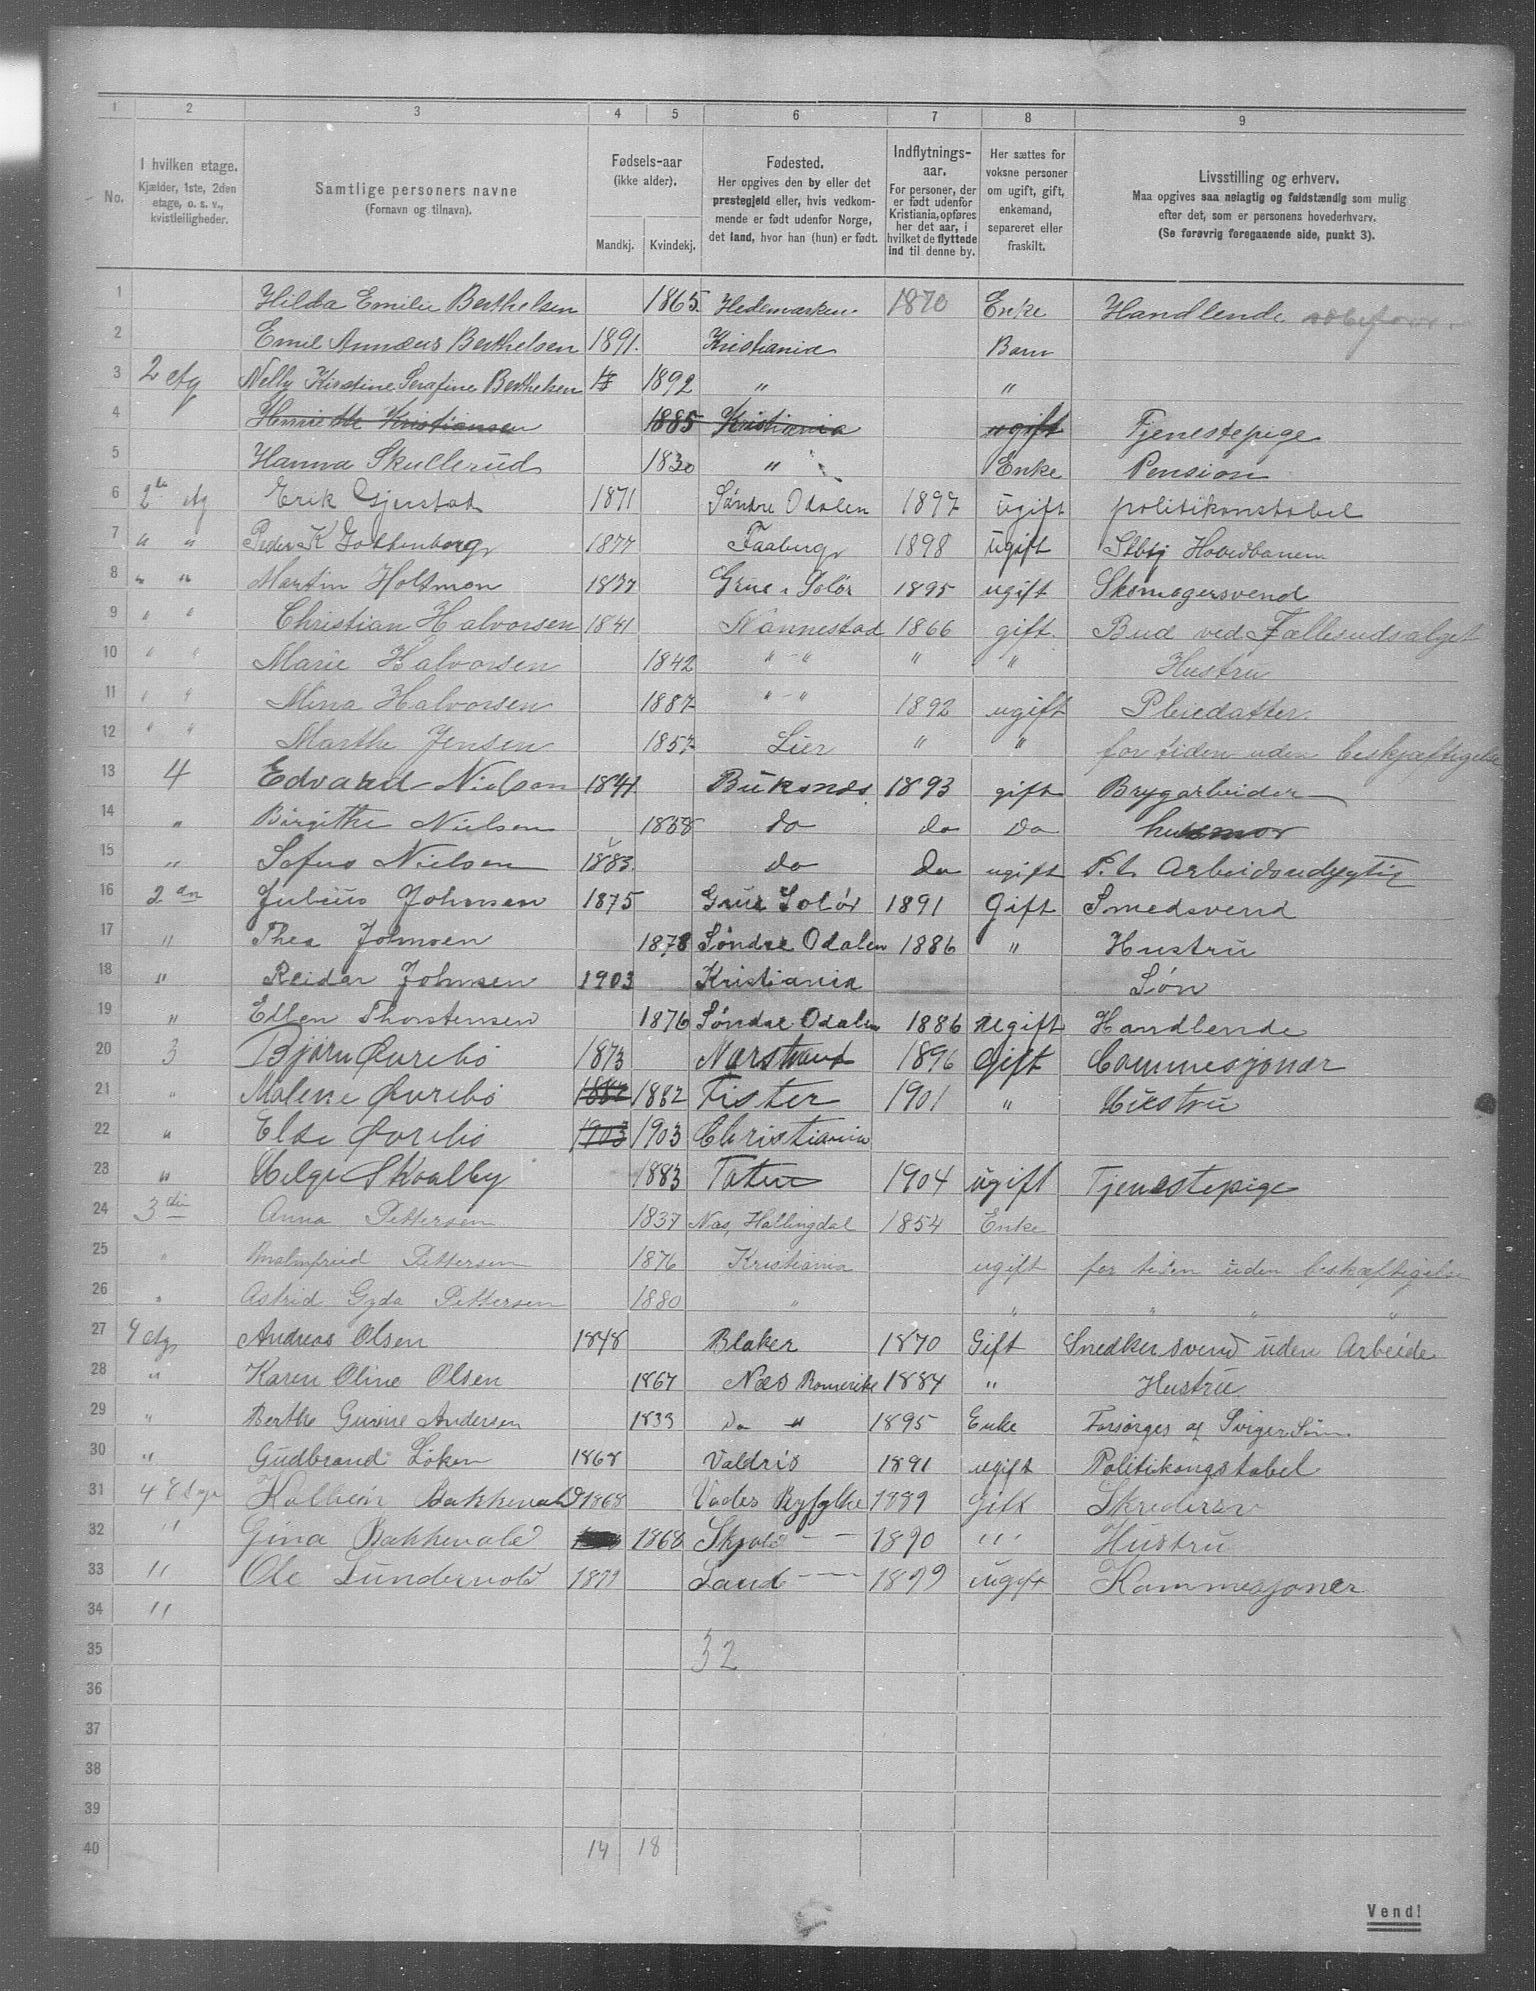 1 2 3 4 5 6 7 8 9
No.
I hvilken etage.
Kjælder, 1ste, 2den
etage, o. s. v.,
kvistleiligheder.
Samtlige personers navne
(Fornavn og tilnavn).
Fødsels-aar
(ikke alder).
Mandkj. Kvindekj.
Fødested.
Her opgives den by eller det
prestegjeld eller, hvis vedkom-
mende er født udenfor Norge,
det land, hvor han (hun) er født.
Indflytnings-
aar.
For personer, der
er født udenfor
Kristiania, opføres
her det aar, i
hvilket de flyttede
ind til denne by.
Her sættes for
voksne personer
om ugift, gift,
enkemand,
separeret eller
fraskilt.
Livsstilling og erhverv.
Maa opgives saa nøiagtig og fuldstændig som mulig
efter det, som er personens hovederhverv.
(Se forøvrig foregaaende side, punkt 3).
1 Hilda Emilie Berthelsen 1865 Hedemarken 1870 Enke Handlende
2 Emil Annæus Berthelsen 1891. Kristiania Barn
3 2 etg Nelly Kirstine Serafine Berthelsen 1892 " "
4 " Henriette Kristiansen 1885 Kristiania ugift Tjenestepige
5 Hanna Skullerud 1830 " Enke Pension
6 2de etg Erik Gjerstad 1871 Søndre Odalen 1897 ugift politikonstabel
7 " " Peder K Gottenborg 1877 Faaberg 1898 ugift Stbtj Hovedbanen
8 " " Martin Holtmon 1877 Grue i Solør 1895 ugift Skomagersvend
9 " " Christian Halvorsen 1841 Nannestad 1866 gift Bud ved Fællesudsalget
10 " " Marie Halvorsen 1842 " - " " " Hustru
11 " " Mina Halvorsen 1887 " - " 1892 ugift Pleiedatter
12 " " Marthe Jensen 1857 Lier " " for tiden uden beskjæftigelse
13 4 Edvard Nielsen 1841 Buksnes 1893 gift Brygarbeider
14 " Birgithe Nielsen 1838 do do Do husmor
15 " Sofus Nielsen 1883. do Do ugift P.t. Arbeidsudygtig
16 2 den Julius Johnsen 1875 Grue Solør 1891 Gift Smedsvend
17 " Thea Johnsen 1878 Søndre Odalen 1886 " Hustru
18 " Reidar Johnsen 1903 Kristiania Søn
19 " Ellen Thorstensen 1876 Søndre Odalen 1886 ugift Handlende
20 3 Bjørn Øvrebø 1873 Nærstrand 1896 Gift Commesjonær
21 " Malene Øvrebø 1882 1882 Fister 1901 " Hustru
22 " Else Øvrebø 1903 1903 Christiania
23 " Helga Skvalby 1883 Toten 1904 ugift Tjenestepige
24 3 die Anna Pettersen 1837 Næs, Hallingdal 1854 Enke
25 " Malmfrid Pettersen 1876 Kristiania ugift for tiden uden beskæftigelse
26 " Astrid Gyda Pettersen 1880 " " " " "
27 4 etg Andreas Olsen 1848 Blaker 1870 Gift Snedkersvend uden Arbeide
28 " Karen Oline Olsen 1867 Næs Romerike 1884 " Hustru
29 " Berthe Gurine Andersen 1833 Do " 1895 Enke Forsørges af Sviger Søn
30 " Gudbrand Løken 1868 Valdris 1891 ugift Politikonstabel
31 4 Etage Kolbein Bakkevold 1868 Vades Ryfylke 1889 Gift Skrædersv
32 " Gina Bakkevold 1868 Skjold - - 1890 " Hustru
33 " Ole Sundervold 1879 Sand - - 1899 ugift Kommesjoner
34 "
35 32
36
37
38
39
40 14 18
Vend!